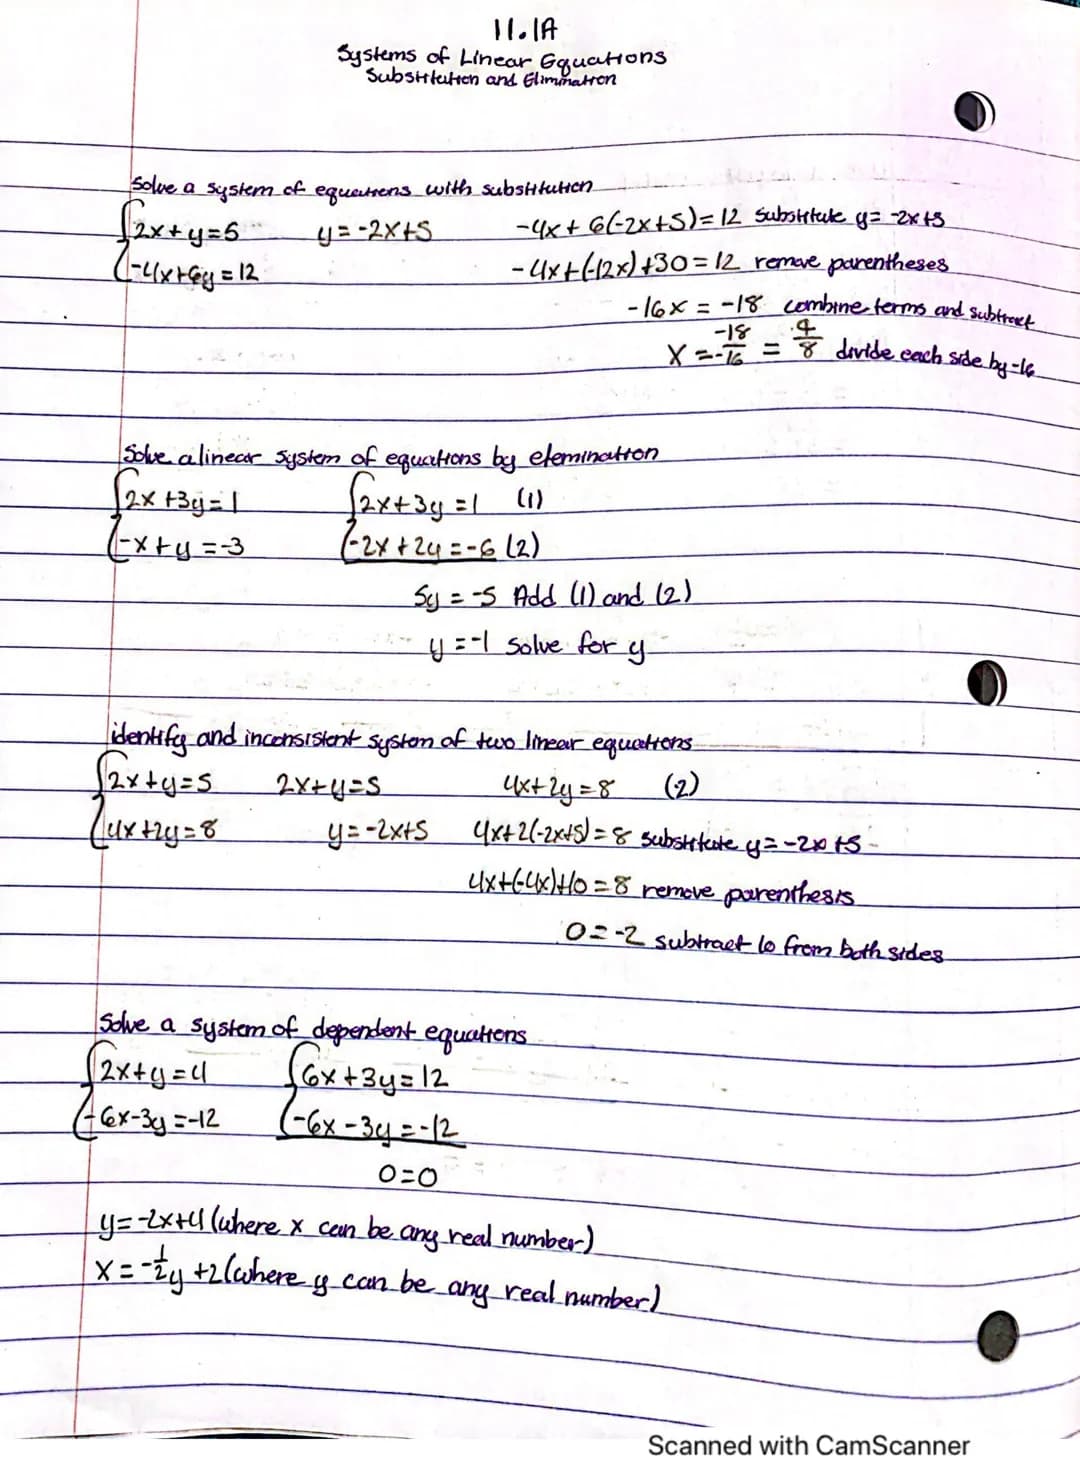 11.1A
Systems of Linear Equations
Substitution and Elimination
Solve a system of equations with substitution
2x+y=5 y=-2x+5 -4x+6(-2x+5)=12 substitute y=-2x+5
-4x+6y=12 -4x+(-12x)+30=12 remove parentheses
-16x=-18 combine terms and subtract
x=-18/-16=9/8 divide each side by -16
Solve a linear system of equations by elemination
2x+3y=1 2x+3y=1 (1)
-x+y=-3 -2x+2y=-6 (2)
5y=-5 Add (1) and (2)
y=-1 solve for y
identify and inconsistent system of two linear equations
2x+y=5 2x+y=5 4x+2y=8 (2)
4x+2y=8 y=-2x+5 4x+2(-2x+5)=8 substitute y=-2x+5
4x+(-4x)+10=8 remove parenthesis
0=-2 subtract 10 from both sides
Solve a system of dependent equations
2x+y=4 6x+3y=12
-6x-3y=-12 -6x-3y=-12
0=0
y=-2x+4 (where x can be any real number)
x=-1/2y+2 (where y can be any real number)
Scanned with CamScanner